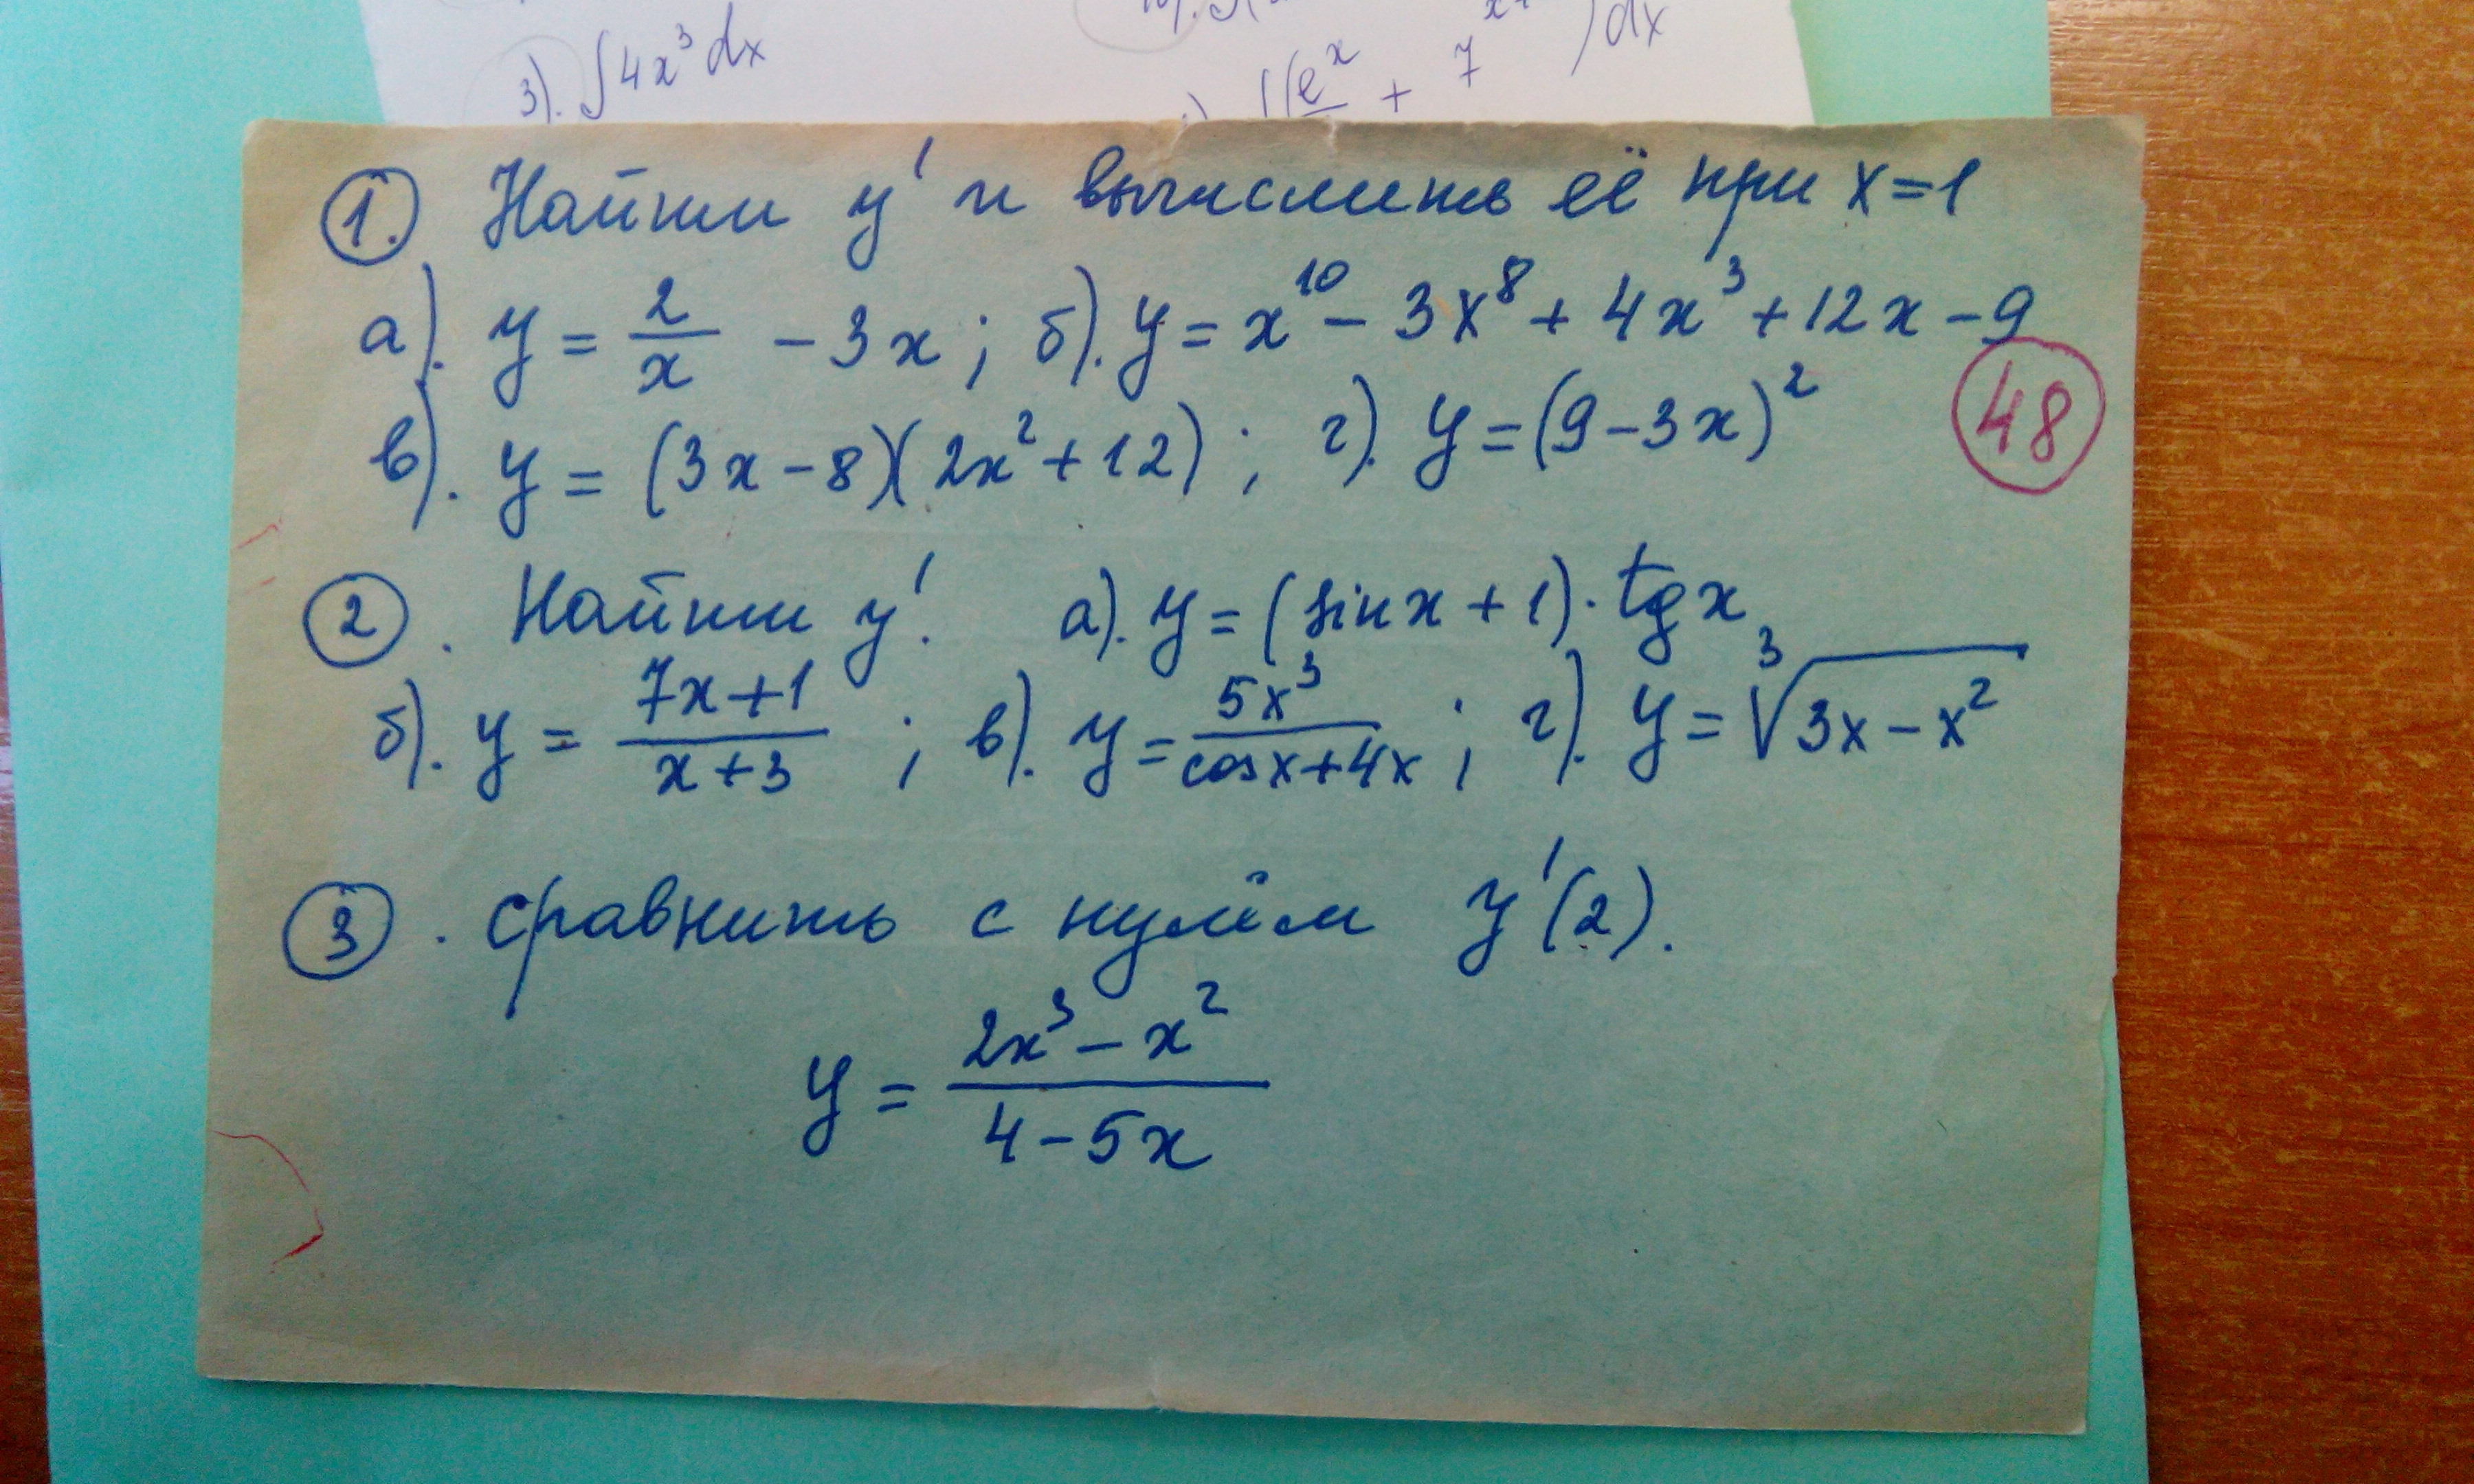 3). ∫4x³dx
eˣ + 7 )dx
1. Найти y' и вычислить её при x=1
а). y = 2/x - 3x; б). y = x¹⁰ - 3x⁸ + 4x³ + 12x - 9
в). y = (3x - 8)(2x² + 12); г). y = (9 - 3x)²
48
2. Найти y'. а). y = (sin x + 1) · tg x
б). y = (7x+1)/(x+3); в). y = 5x³/(cosx+4x); г). y = ∛(3x - x²)
3. Сравнить с нулём y'(2).
y = (2x³ - x²)/(4 - 5x)